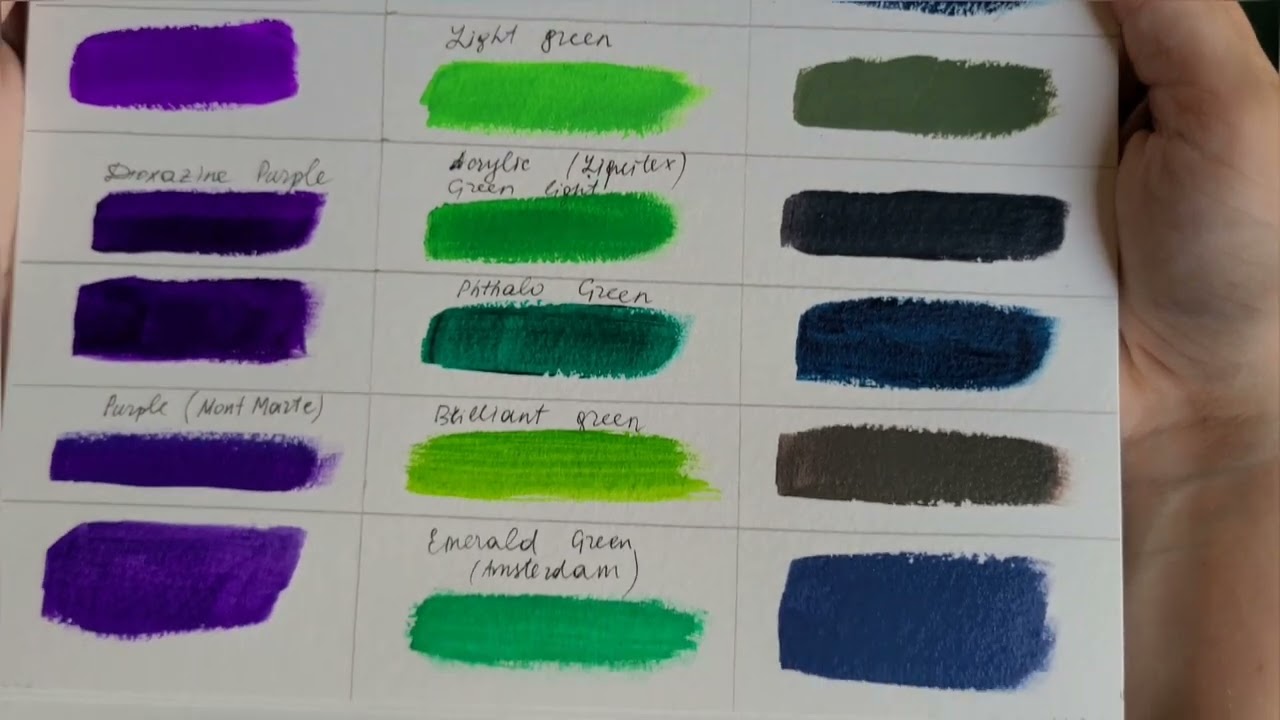 Light green
Dioxazine Purple
Acrylic (Liquitex)
Green light
Phthalo Green
Purple (Mont Marte)
Brilliant green
Emerald Green
(Amsterdam)